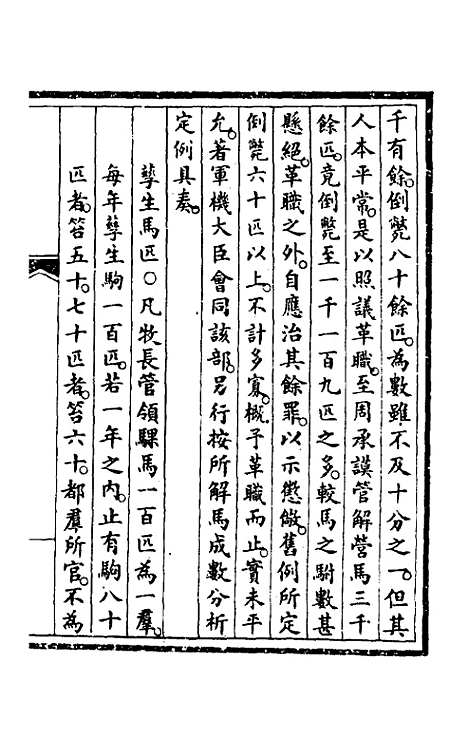 千有餘。倒斃八十餘匹。為數雖不及十分之一。但其
人本平常。是以照議革職。至周承謨管解營馬三千
餘匹。竟倒斃至一千一百九匹之多。較馬之駙數甚
懸絕。革職之外。自應治其餘罪。以示懲儆。舊例所定
倒斃六十匹以上。不計多寡。概予革職而止。實未平
允。著軍機大臣會同該部。另行按所解馬成數分析
定例具奏。
孳生馬匹○凡牧長管領騍馬一百匹為一羣。
每年孳生駒一百匹。若一年之內。止有駒八十
匹者。笞五十。七十匹者。笞六十。都羣所官。不為